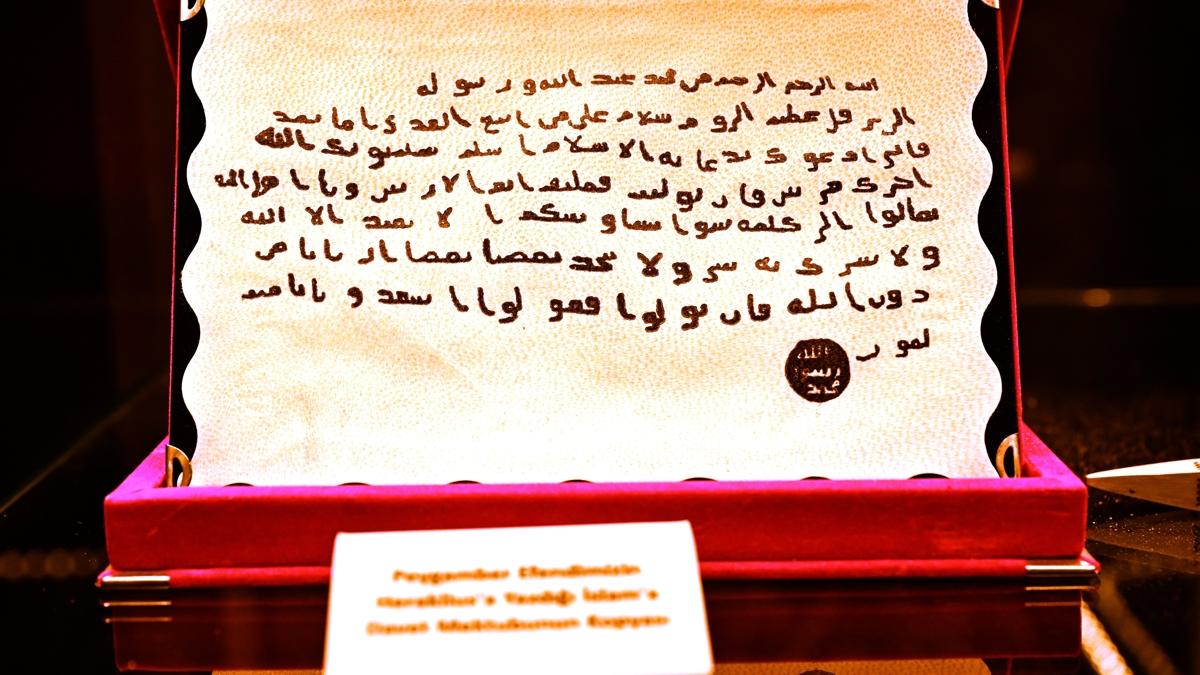 الله الرحمن الرحيم من محمد عبد الله و رسوله
الى هرقل عظيم الروم سلام على من اتبع الهدى اما بعد
فانى ادعوك بدعاية الاسلام اسلم تسلم يوتك الله
اجرك مرتين فان توليت فعليك اثم الاريسين ويا اهل
تعالوا الى كلمة سوا بيننا وبينكم ا لا نعبد الا الله
ولا نشرك به ولا يتخذ بعضنا بعضا اربابا من
دون الله فان تولوا فقولوا اشهدوا بانا مس
لمون
الله
رسول
محمد
Peygamber Efendimizin
Yazdığı İslam'a
Davet Mektubunun Kopyası